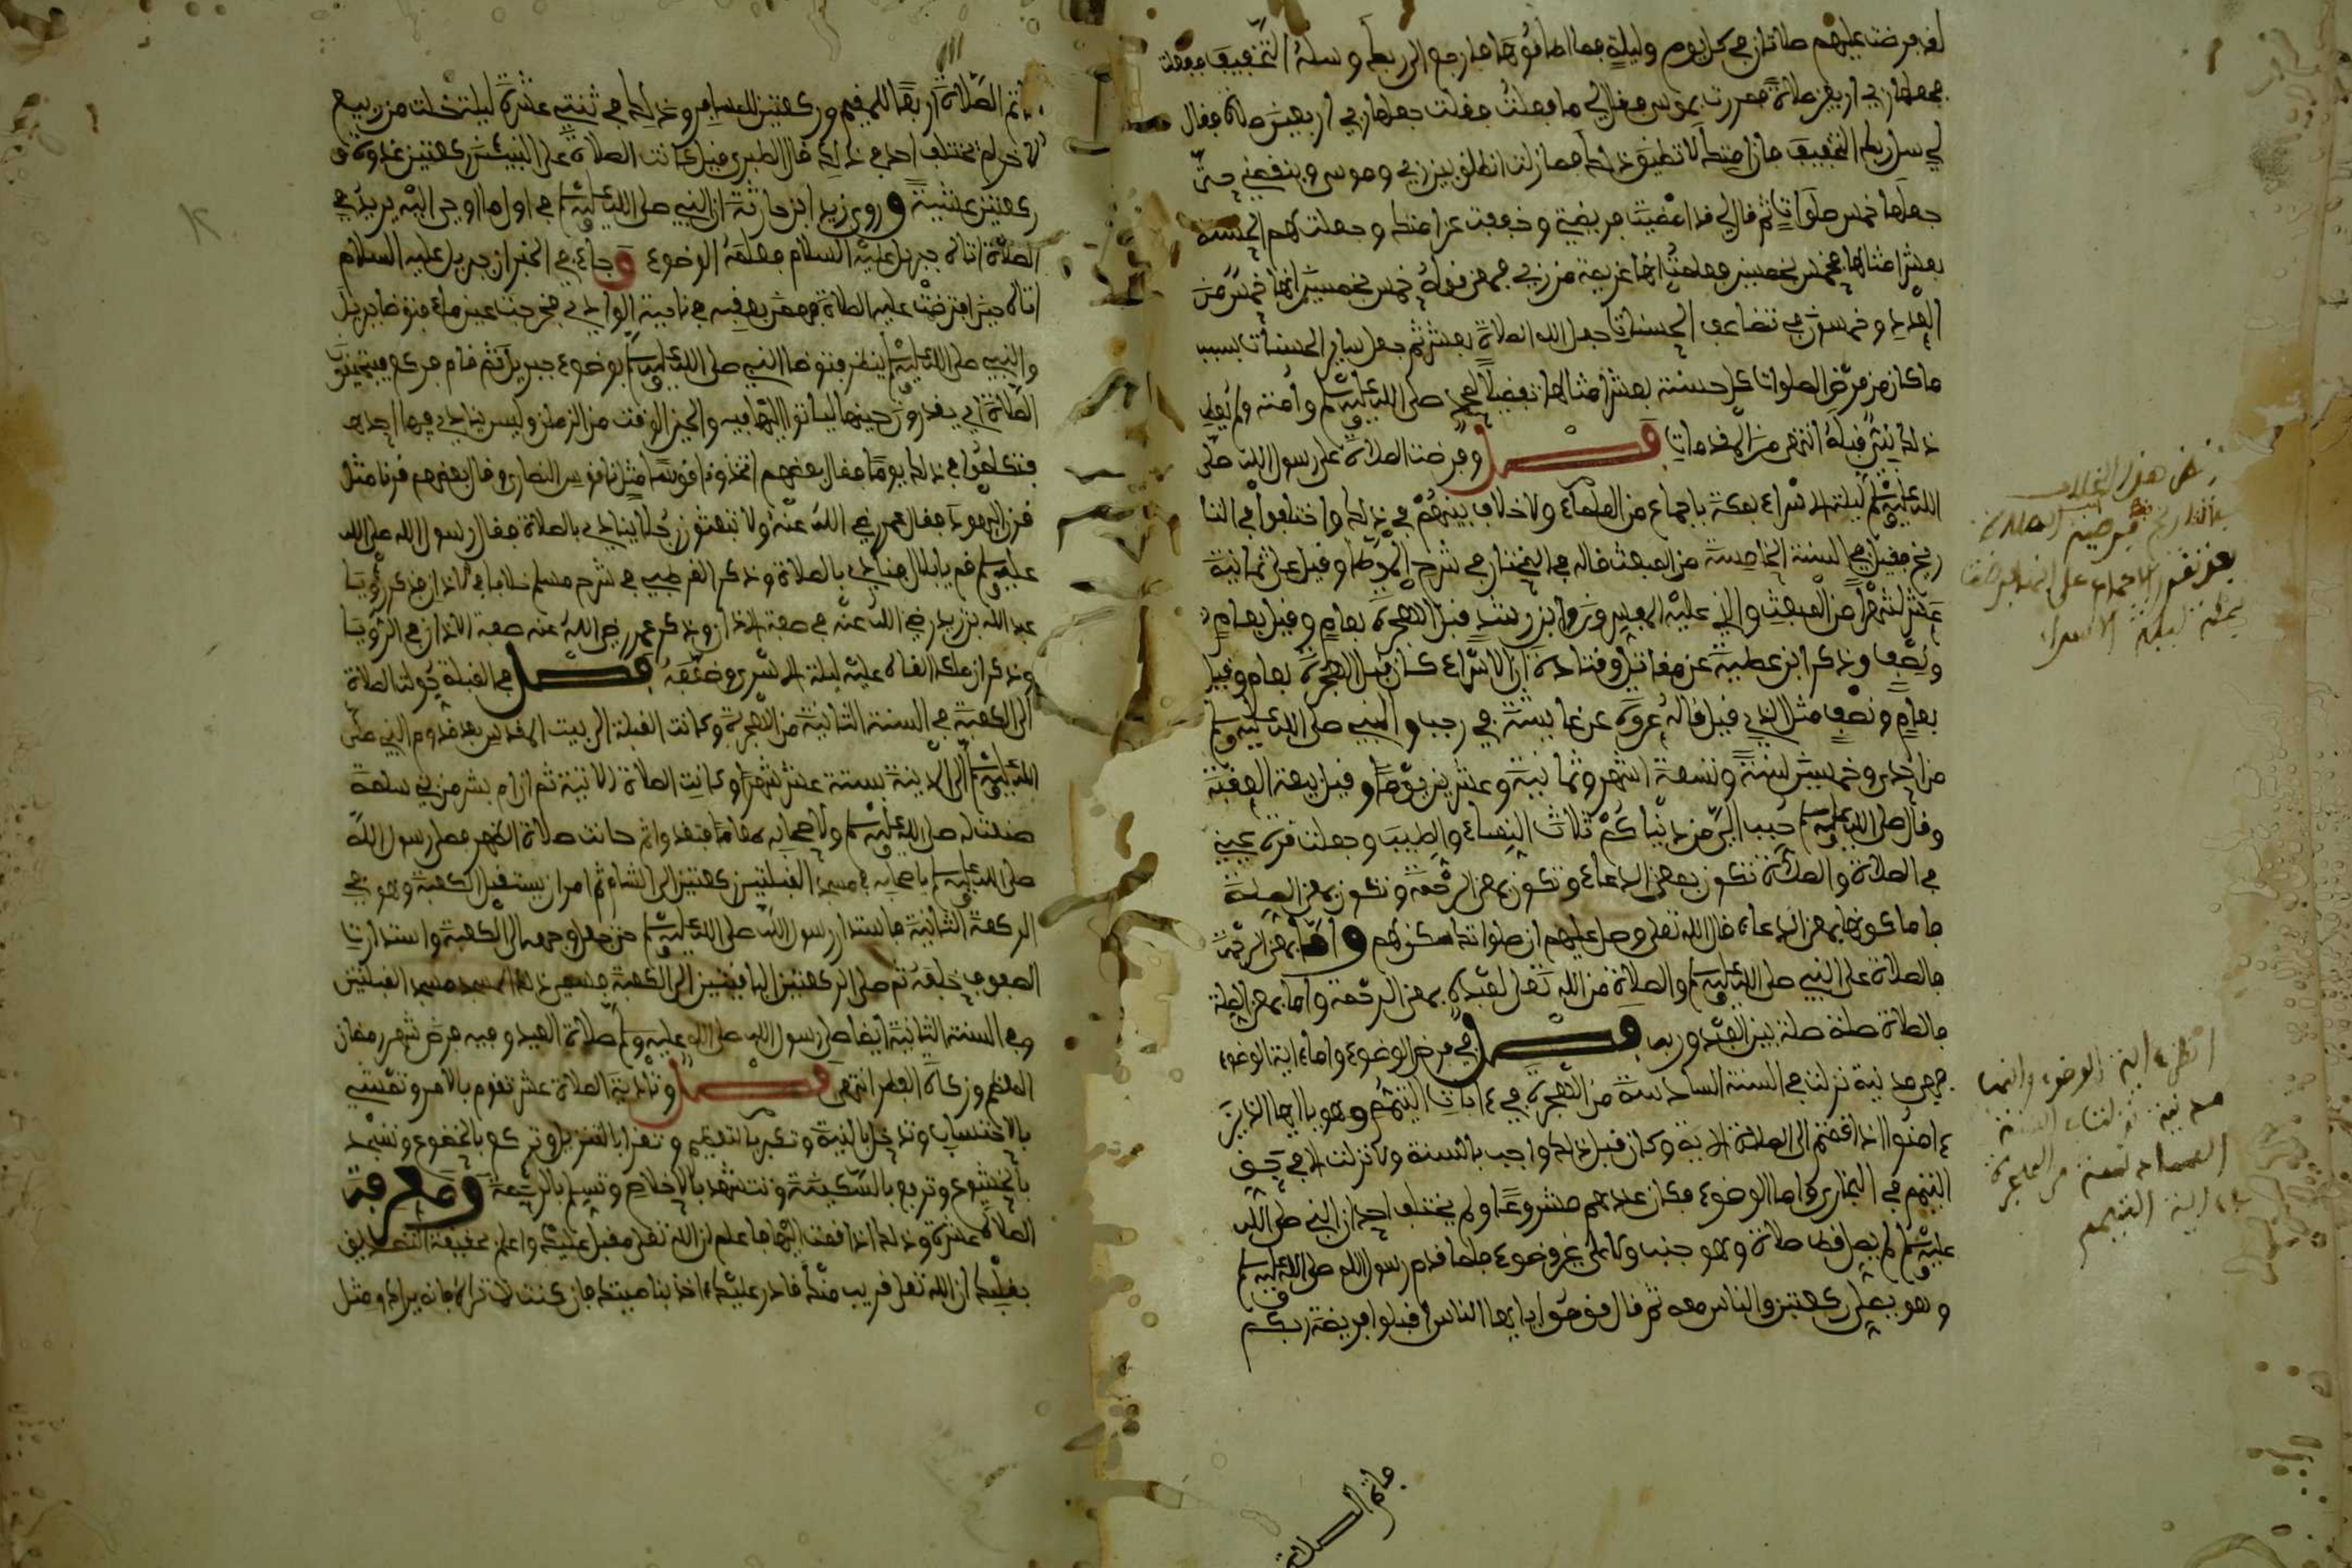 لقد فرضت عليهم صلاتان في كل يوم وليلة فما اطاقوها فارجع الى ربك وسله التخفيف ففعلت
فجعلها ربي اربعين صلاة فمررت بموسى فقال لي ما فعلت فقلت جعلها ربي اربعين صلاة فقال
لي سل ربك التخفيف فان امتك لا تطيق ذلك فما زلت انطلق بين ربي وموسى وينقصني حتى
جعلها خمس صلوات ثم قال لي قد امضيت فريضتي وخففت عن امتك وجعلت لهم الحسنة
بعشر امثالها فخمس بخمسين فعلمت انها عزيمة من ربي فمعنى قوله خمس بخمسين انها خمس من
العدد وخمسون في تضاعف الحسنات جعل الله الصلاة بعشر ثم جعل ساير الحسنات بسبب
ما كان من فرض الصلوات كل حسنة بعشر امثالها تفضيلا لمحمد صلى الله عليه وسلم وامته ولم يعط
ذلك نبي قبله انتهى من المقدمات فصل وفرضت الصلاة على رسول الله صلى
الله عليه وسلم ليلة الاسراء بمكة باجماع من العلماء ولا خلاف بينهم في ذلك واختلفوا في التا
ريخ فقيل في السنة الخامسة من المبعث قاله في المختار في شرح الموطا وقيل على ثمانية
عشر شهرا من المبعث والذي عليه المعيس ورواه ابن رشد قبل الهجرة بعام وقيل بعام
ونصف وذكر ابن عطية عن مقاتل وقتادة ان الاسراء كان قبل الهجرة بعام وقيل
بعام ونصف مثل الذي قبل قاله عروة عن عايشة في رجب والنبي صلى الله عليه وسلم
من احدى وخمسين سنة وتسعة اشهر وثمانية وعشرين يوما وقيل بيعة العقبة
وقال صلى الله عليه وسلم حبب الي من دنياكم ثلاث النساء والطيب وجعلت قرة عيني
في الصلاة والصلاة تكون بمعنى الدعاء وتكون بمعنى الرحمة وتكون بمعنى الصلة
فاما كونها بمعنى الدعاء قال الله تعلى وصل عليهم ان صلواتك سكن لهم واما بمعنى الرحمة
فالصلاة على النبي صلى الله عليه وسلم والصلاة من الله تعلى لعبده بمعنى الرحمة واما بمعنى الصلة
فالصلاة صلة بين العبد وربه فصل في فرض الوضوء واما ءاية الوضوء
فهي مدنية نزلت في السنة السادسة من الهجرة في ءايات التيمم وهو يا ايها الذين
ءامنوا اذا قمتم الى الصلاة الاية وكان قبل ذلك واجب بالسنة ولا نزلت الا في
التيمم في البخاري واما الوضوء فكان عندهم مشروعا ولم يختلف احد ان النبي صلى الله
عليه وسلم لم يصل قط صلاة وهو جنب ولا على غير وضوء فلما قدم رسول الله صلى الله عليه وسلم
وهو يصلي ركعتين والناس معه ثم قال قوموا يا ايها الناس اقبلوا فريضة ربكم
فاتم الصلاة
بعد نقله الاجماع على انها فرضت
بمكة ليلة الاسراء
انظر ءاية الوضوء وانها
مدنية نزلت السنة
السادسة من الهجرة
ءاية التيمم
فاتم الصلاة اربعا للمقيم وركعتين للمسافر وذلك في ثنتي عشرة ليلة خلت من ربيع
الاخر لم يختلف احد في ذلك قال الطبري قيل كانت الصلاة على النبي ركعتين غدوة و
ركعتين عشية وروى زيد ابن حارثة ان النبي صلى الله عليه وسلم في اول ما اوحي اليه يريد في
الصلاة اتاه جبريل عليه السلام فعلمه الوضوء وجاء في الخبر ان جبريل عليه السلام
اتاه حين افترضت عليه الصلاة فهمز بعقبه في ناحية الوادي فخرجت عين ماء فتوضا جبريل
والنبي صلى الله عليه وسلم ينظر فتوضا النبي صلى الله عليه وسلم بوضوء جبريل ثم قام فركع فيتحينون
الصلاة اي يقدرون حينها لياتوا اليها فيه والحين الوقت من الزمان وليس ينادي فيها احد
فتكلموا في ذلك يوما فقال بعضهم اتخذوا ناقوسا مثل ناقوس النصارى وقال بعضهم قرنا مثل
قرن اليهود فقال عمر رضي الله عنه اولا تبعثون رجلا ينادي بالصلاة فقال رسول الله صلى الله
عليه وسلم قم يا بلال فنادي بالصلاة وذكر القرطبي في شرح مسلم خلافا في الاذان فذكر رؤيا
عبد الله بن زيد رضي الله عنه في صفة الاذان وذكر عمر رضي الله عنه صفة الاذان في الرؤيا
وذكر ان ملكا القاه عليه ليلة الاسرى وضعفه فصل في القبلة حولت الصلاة
الى الكعبة في السنة الثانية من الهجرة وكانت القبلة الى بيت المقدس بعد قدوم النبي صلى
الله عليه وسلم الى المدينة بستة عشر شهرا وكانت الصلاة ثانية ثم ان ام بشر من بني سلمة
صنعت له صلى الله عليه وسلم ولاصحابه طعاما فتغدوا ثم حانت صلاة الظهر فصلى رسول الله
صلى الله عليه وسلم باصحابه في مسجد القبلتين ركعتين الى الشام ثم امر ان يستقبل الكعبة وهو في
الركعة الثانية فاستدار رسول الله صلى الله عليه وسلم حتى جعل وجهه الى الكعبة واستدارت
الصفوف خلفه ثم صلى الركعتين الباقيتين الى الكعبة فسمي ذلك المسجد مسجد القبلتين
وفي السنة الثانية ايضا صلى رسول الله صلى الله عليه وسلم صلاة العيد وفيه فرض شهر رمضان
المعظم وزكاة الفطر انتهى فصل وتادية الصلاة عشر تقوم بالامر وتمشي
بالاحتساب وتدخل بالنية وتكبر بالتعظيم وتقرا بالترتيل وتركع بالخضوع وتسجد
بالخشوع وترفع بالسكينة وتتشهد بالاخلاص وتسلم بالرحمة ومعرفة
الصلاة عشرة وذلك اذا قمت اليها فاعلم ان الله تعلى مقبل عليك واعلم بحقيقة التصديق
بقلبك ان الله تعلى قريب منك قادر عليك ءاخذ بناصيتك فان كنت لا تراه فانه يراك ومثل